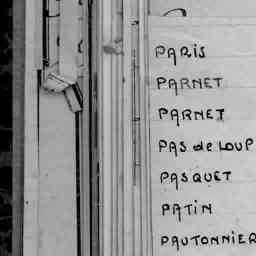 PARIS
PARNET
PARNET
PAS de LOUP
PASQUET
PATIN
PAUTONNIER